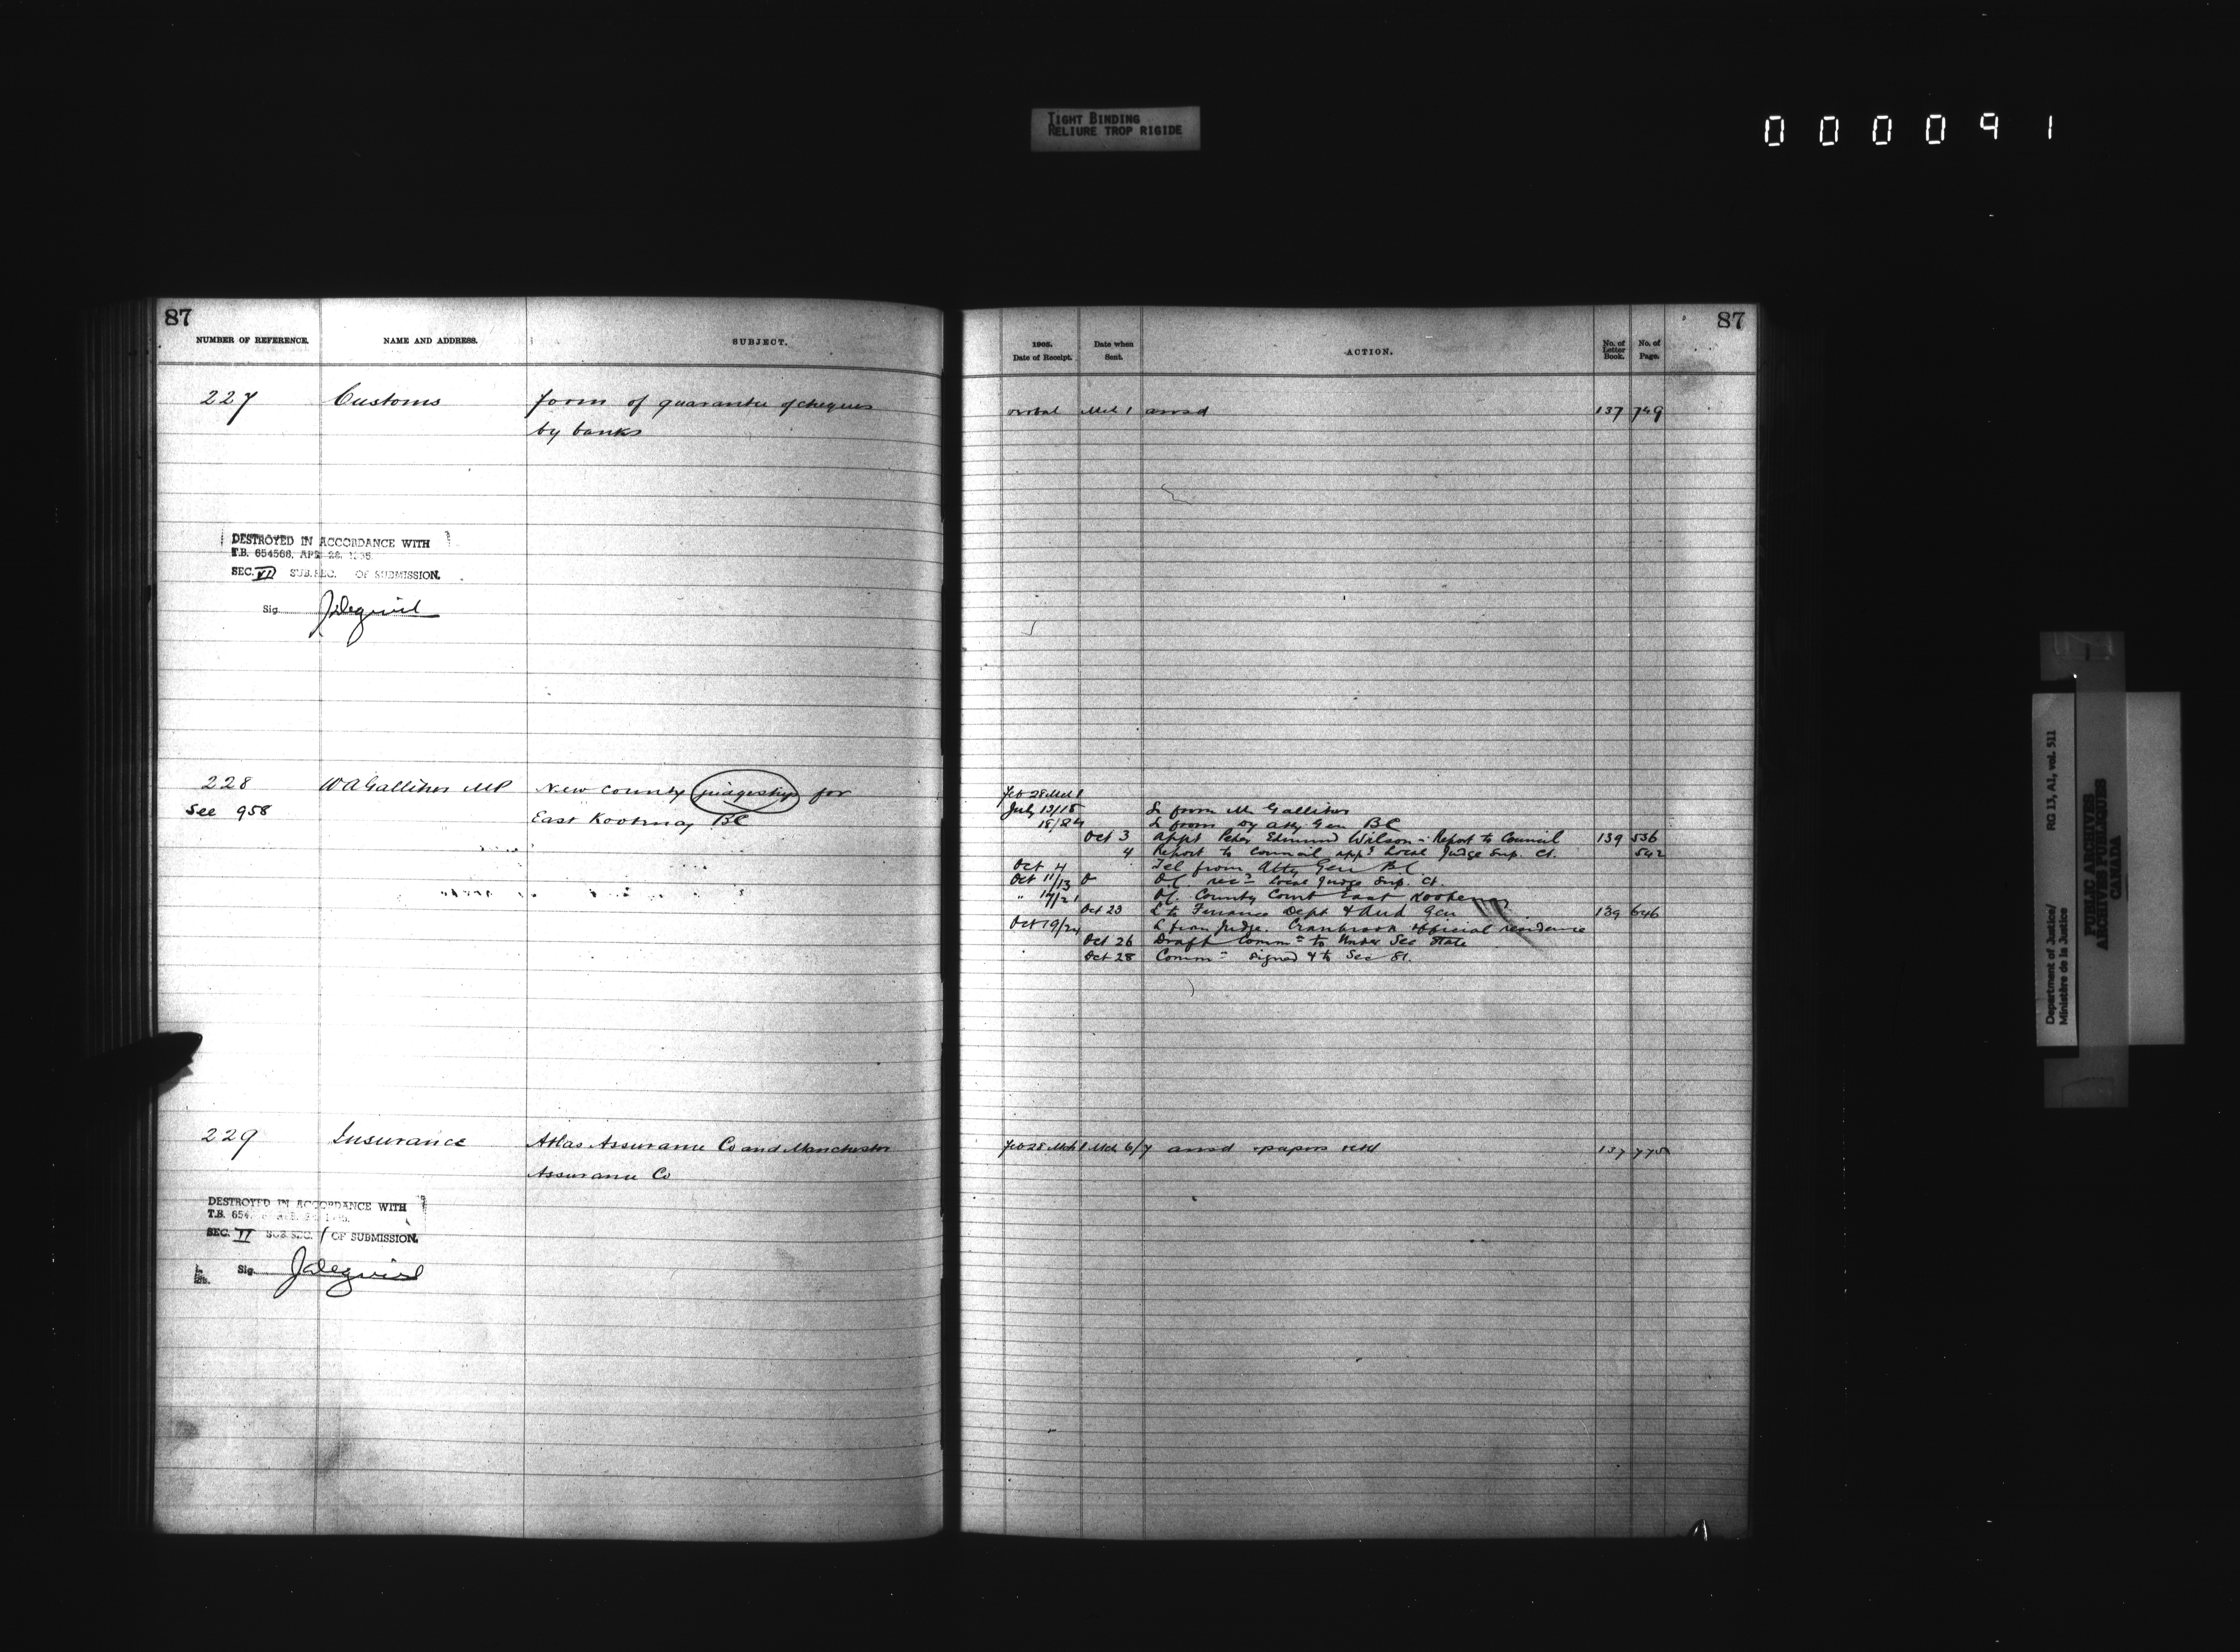 TIGHT BINDING
RELIURE TROP RIGIDE
000091
87
NUMBER OF REFERENCE.
NAME AND ADDRESS.
SUBJECT.
227 Customs form of guarantee of cheques
by banks
DESTROYED IN ACCORDANCE WITH
T.B. 654568, APR 28, 1935
SEC. VI SUB. SEC. OF SUBMISSION.
Sig.
228 W A Galliher MP New County judgeship for
See 958 East Kootenay BC
229 Insurance Atlas Assurance Co and Manchester
Assurance Co
DESTROYED IN ACCORDANCE WITH
T.B. 654
SEC. VI SUB. SEC. 1 OF SUBMISSION.
Sig.
87
1905.
Date of Receipt.
Date when
Sent.
ACTION.
No. of
Letter
Book.
No. of
Page.
verbal Mch 1 answd 137 749
Feb 28 Mch 1
July 13/15 L from Mr Galliher
18/24 L from Dy Atty Gen BC
Oct 3 appt Peter Edmund Wilson - Report to Council 139 536
4 Report to Council appt Local Judge Sup. Ct. 542
Oct 4 Tel from Atty Gen BC
Oct 11/13 O OC recd Local Judge Sup. Ct.
" 17/21 OC. County Court East Kootenay
Oct 23 L to Finance Dept & Aud Gen 139 646
Oct 19/24 L from Judge. Cranbrook official residence
Oct 26 Draft Comm= to Under Sec State
Oct 28 Comm= signed & to Sec St.
Feb 28 Mch 1 Mch 6/7 answd papers retd 137 775
Department of Justice/
Ministère de la Justice
RG 13, A1, vol. 511
PUBLIC ARCHIVES
ARCHIVES PUBLIQUES
CANADA